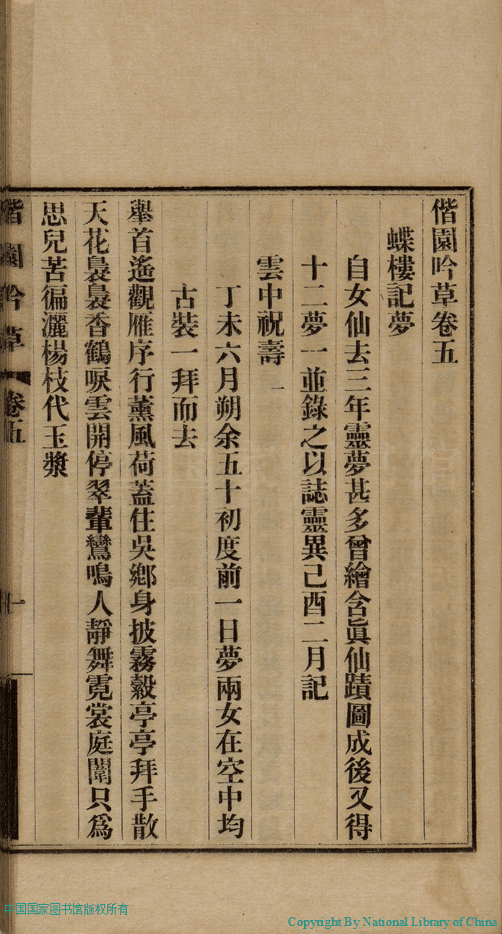 偕園吟草卷五
蝶樓記夢
自女仙去三年靈夢甚多曾繪含眞仙蹟圖成後又得
十二夢一並錄之以誌靈異己酉二月記
雲中祝壽 一
丁未六月朔余五十初度前一日夢兩女在空中均
古裝一拜而去
舉首遙觀雁序行薰風荷蓋住吳鄕身披霧縠亭亭拜手散
天花裊裊香鶴唳雲開停翠輦鸞鳴人靜舞霓裳庭闈只爲
思兒苦徧灑楊枝代玉漿
偕園吟草 卷五 一
中国国家图书馆版权所有
Copyright By National Library of China